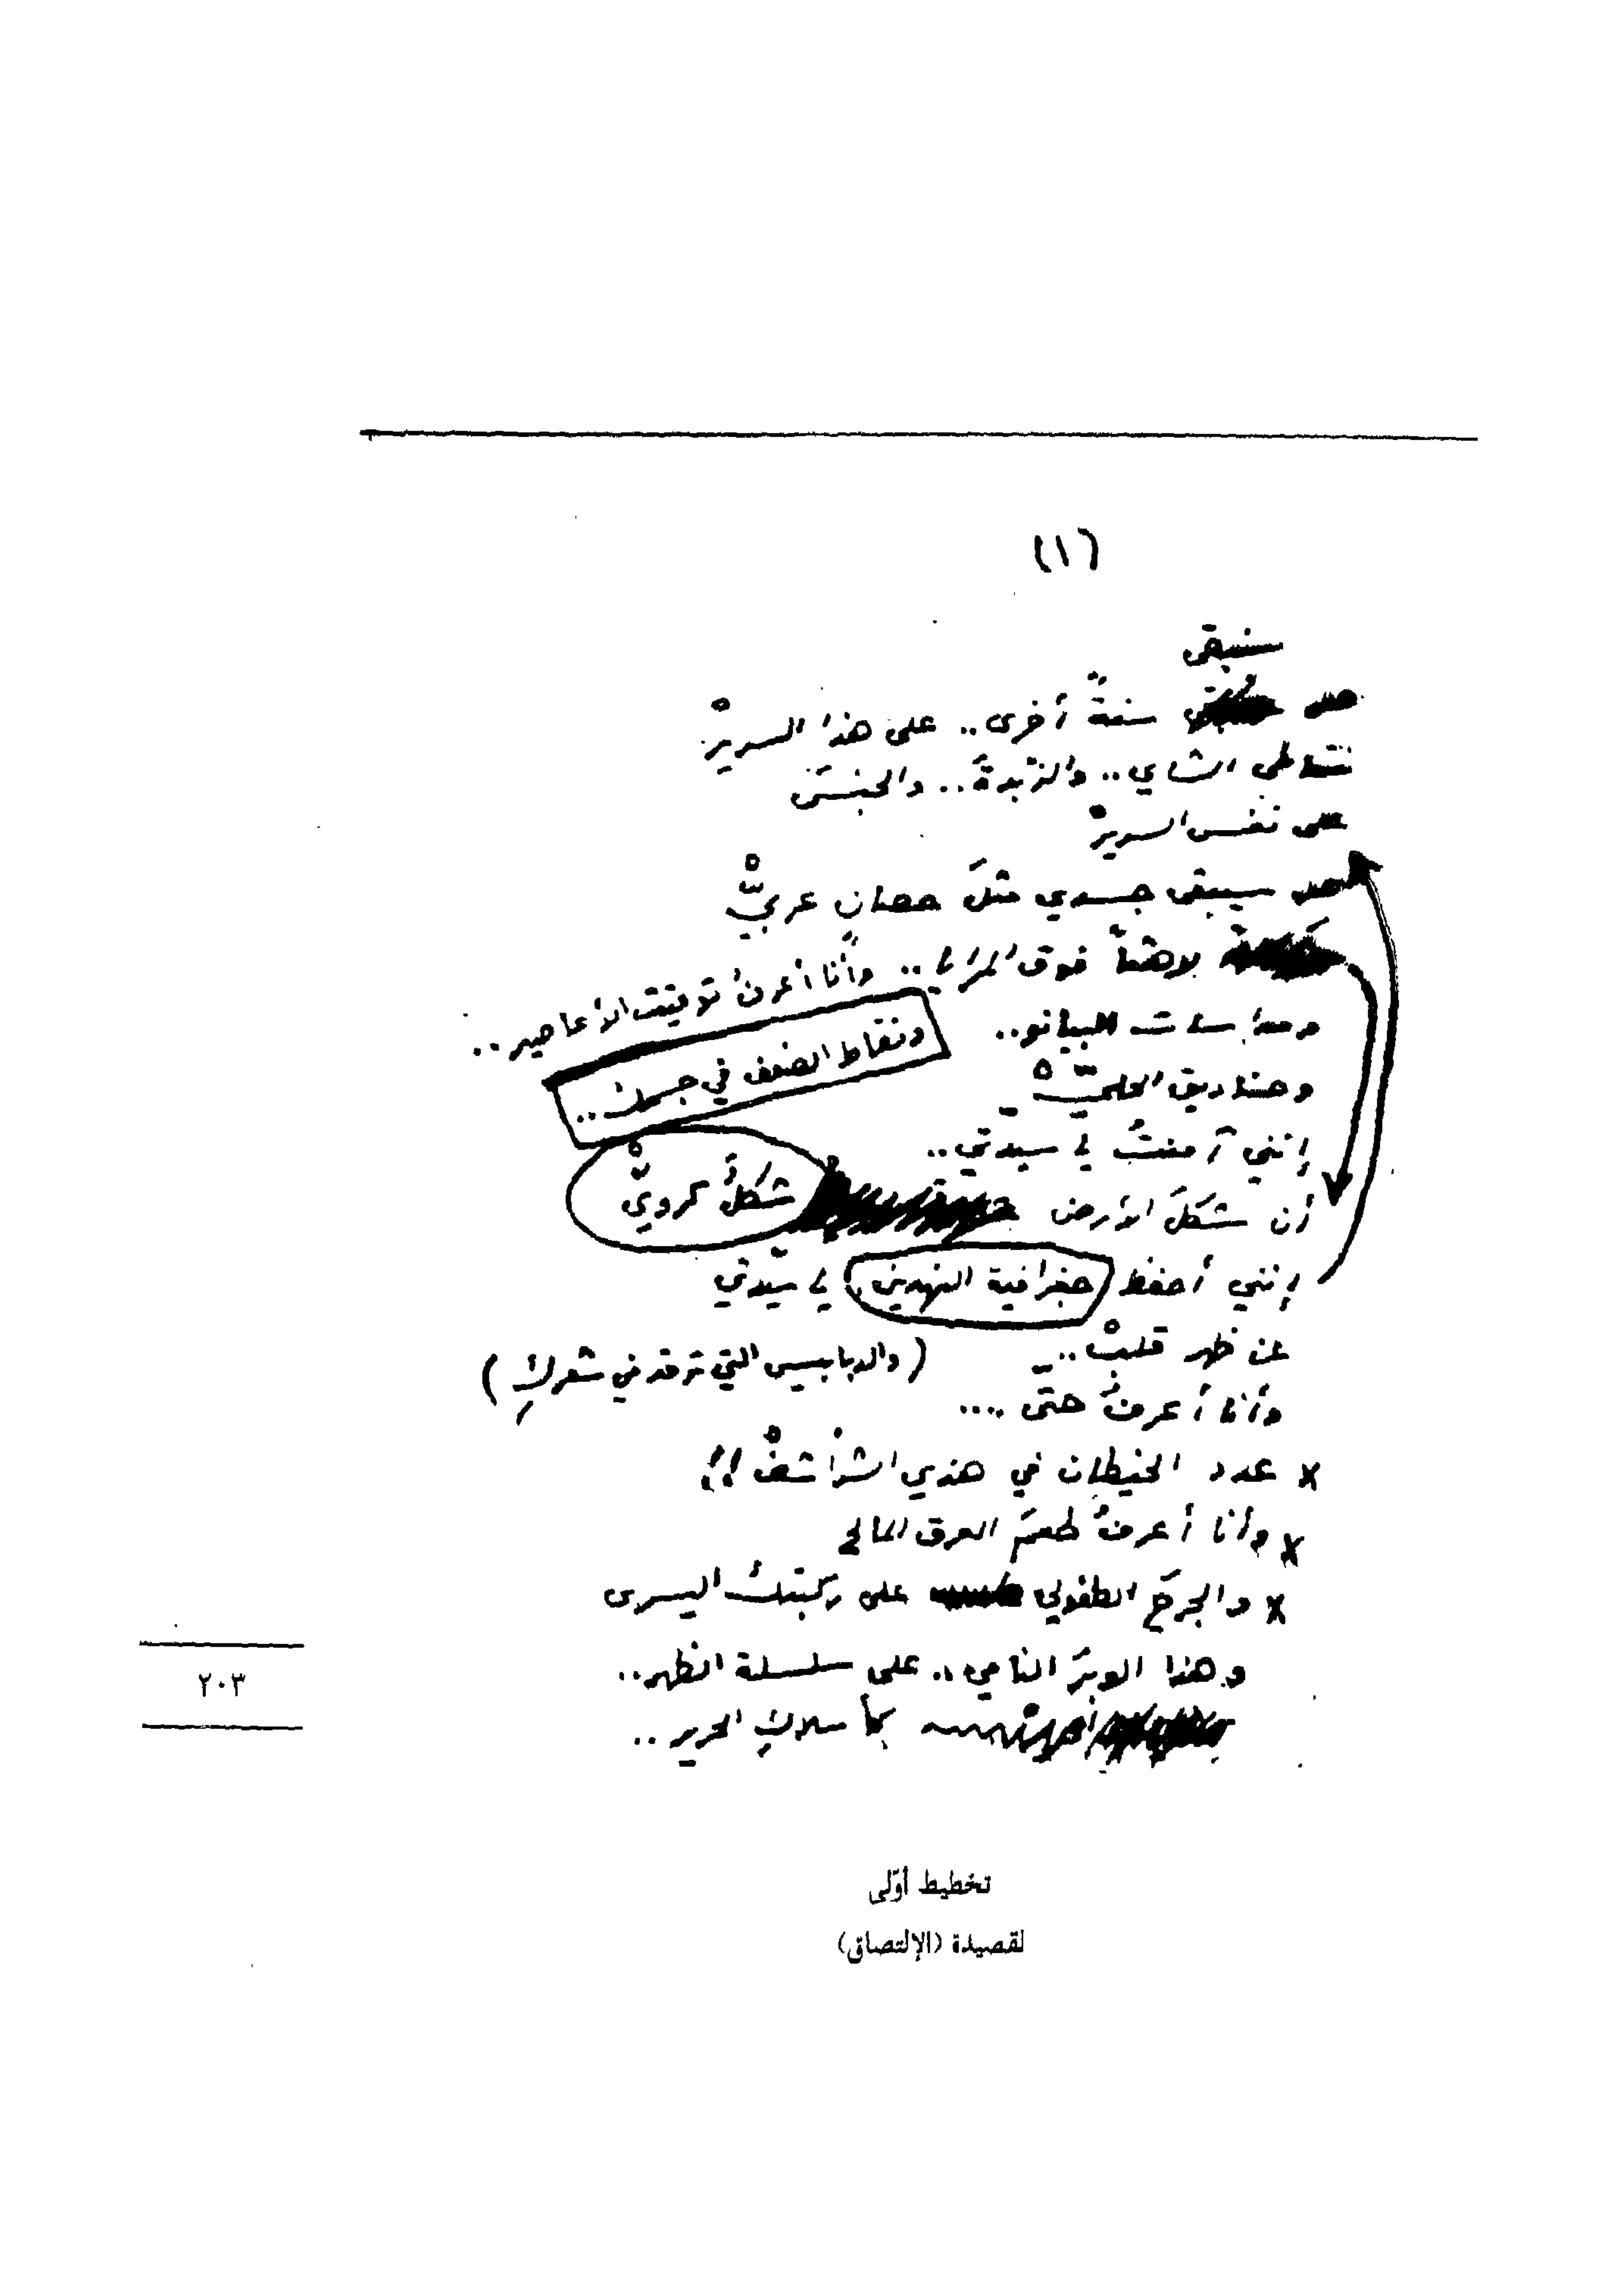 (١)
سنبقى
هل سنةً أخرى.. على هذا السريرْ
نتعاطى الشاي.. والزبدةَ.. والجنسَ
على نفس السريرْ
هل سيبقى جسدي مثلَ حصانٍ عربيّْ
لاهثاً فوق المرايا.. وأنا أعرفُ توقيتَ الأعاصير..
ومداسات البيانو..
ونقاط الضعف في جسمك..
وصناديق الحليّْ
إنني آمنتُ يا سيدتي..
أن شكلَ الأرض شكلٌ كرويّْ
إنني أحفظ جغرافية النهدين، يا سيّدتي
عن ظهر قلبْ..
(والدبابيس التي ترقد في شعركِ)
وأنا أعرفُ حتى ....
× عدد الخيطان في هذي الشراشفْ!!
× وأنا أعرفُ طعمَ العرق المالح
× والجرحَ الطفولي على ركبتكِ اليسرى
وهذا الوبرَ النامي.. على سلسلة الظهر..
كأسلاكِ الحرير..
٢٠٣
تخطيط أوّلى
لقصيدة (الإلتصاق)